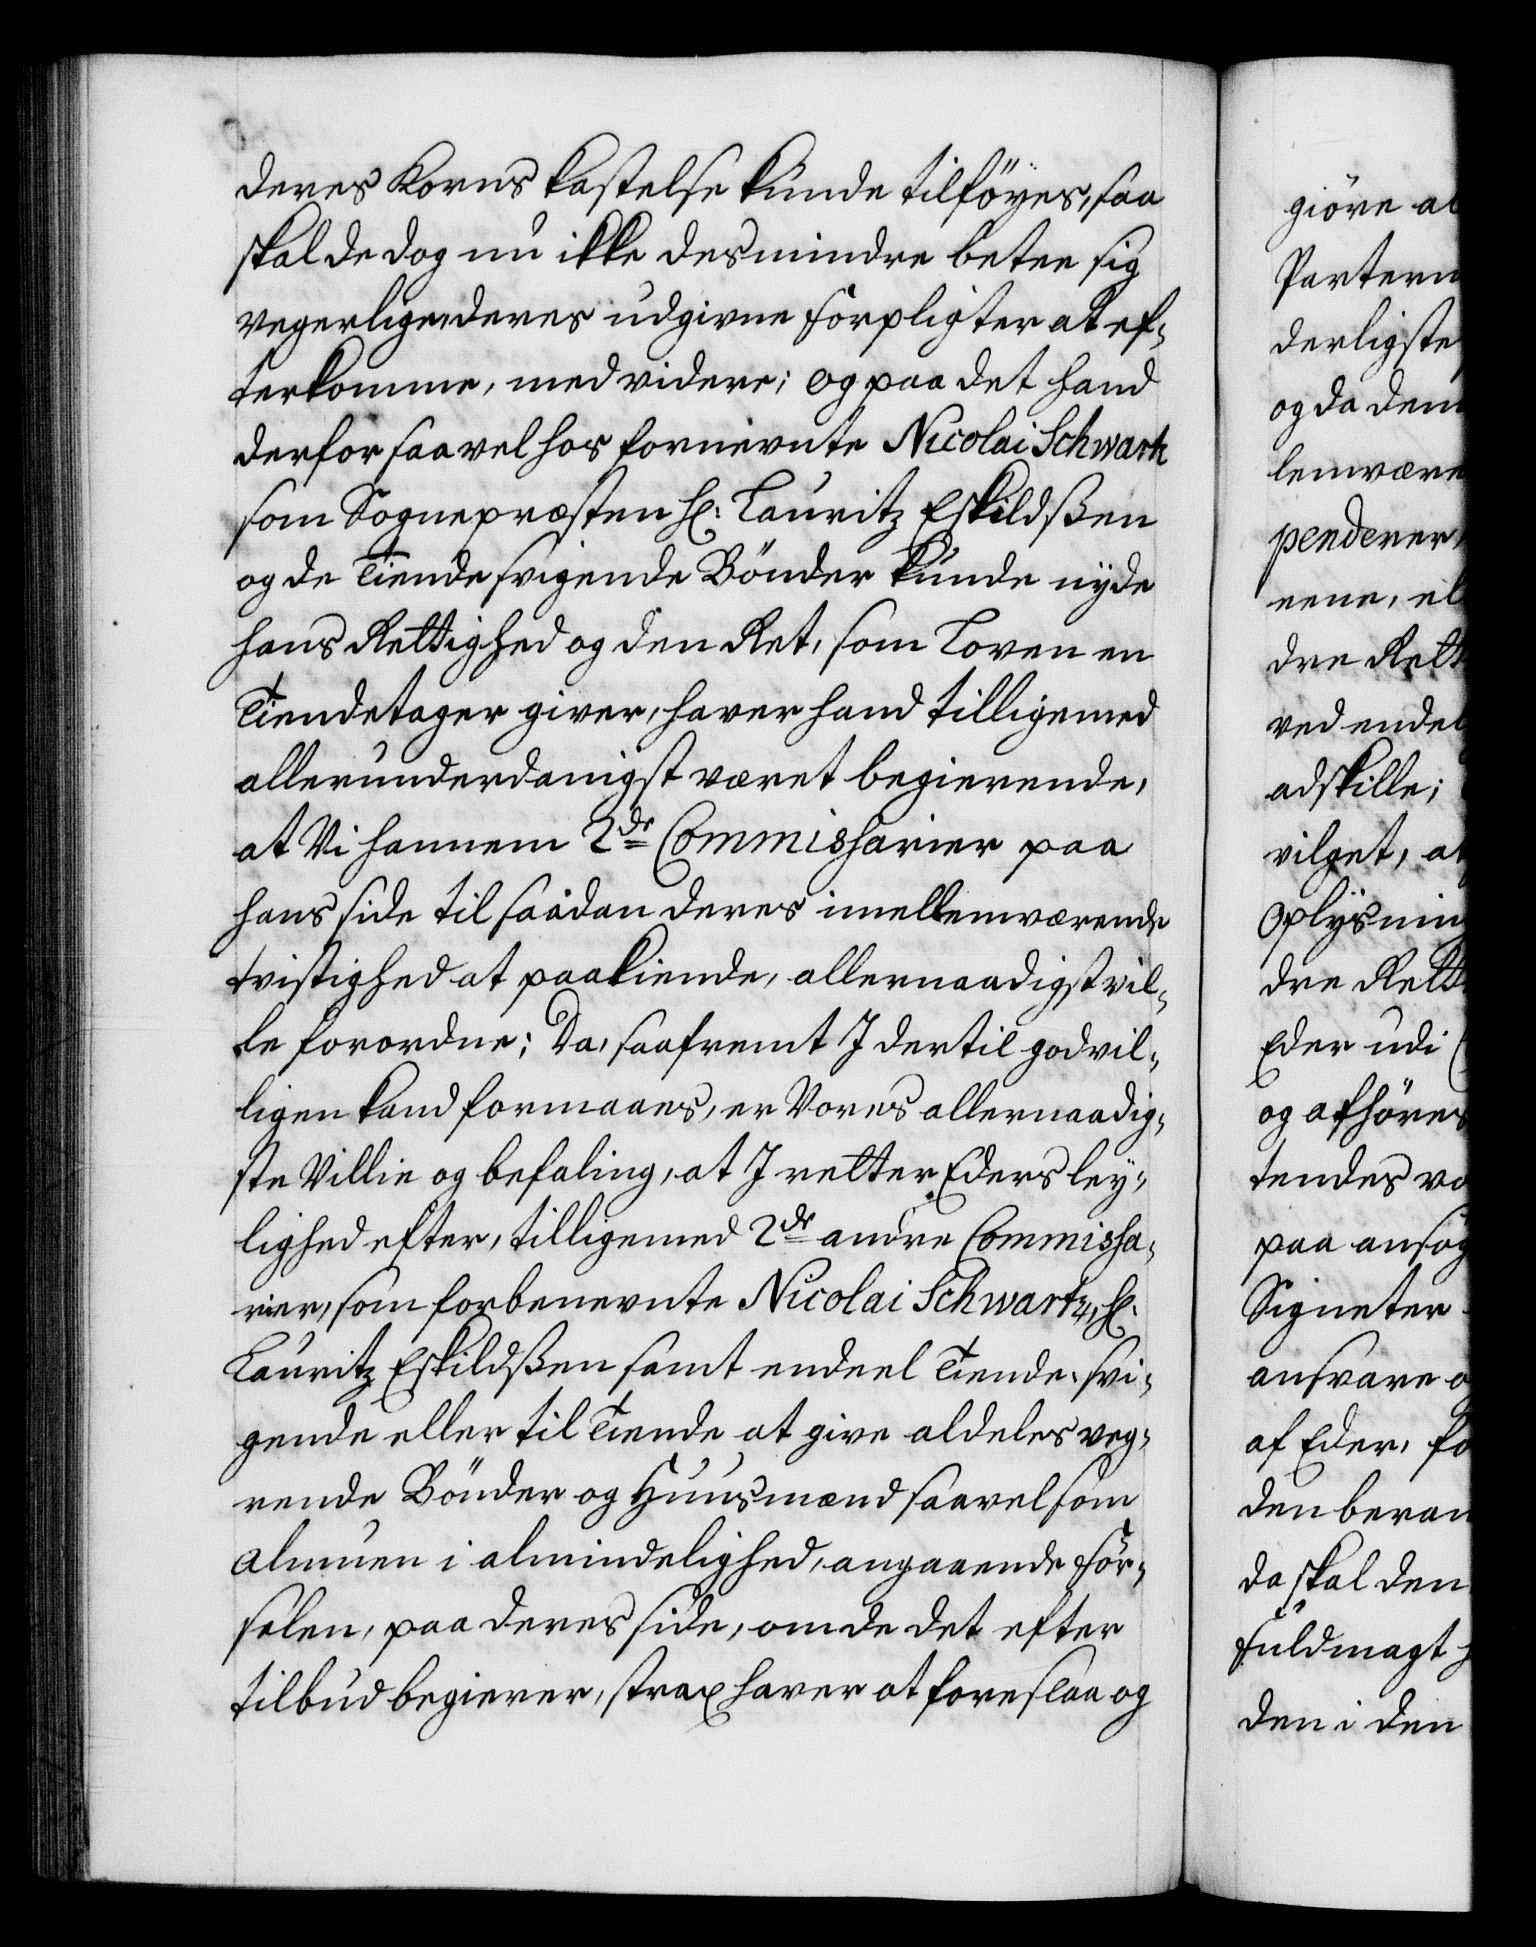 deres Korns kastelse kunde tilföyes, saa
skal de dog nu ikke desmindre betee sig
vegerlige, deres udgivne forpligter at ef-
terkomme, med videre; og paa det hand
derfor saavel hos fornevnte Nicolai Schwartz
som Sognepræsten Hr: Lauritz Eskildßen
og de Tiende svigende Bönder kunde nyde
hans Rettighed og den Ret, som Loven en
Tiendetager giver, haver hand tilligemed
allerunderdanigst været begierende,
at Vi hannem 2de Commisharier paa
hans side til saadan deres imellemværende
tvistighed at paakiende, allernaadigst vil-
le forordne; Da, saafremt I dertil godvil-
ligen kand formaaes, er Vores allernaadig-
ste Villie og befaling, at I retter Eders ley-
lighed efter, tilligemed 2de andre Commisha-
rier, som forbenevnte Nicolai Schwartz, Hr:
Lauritz Eskildßen samt endeel Tiende-svi-
gende eller til Tiende at give aldeles veg-
rende Bönder og Huusmænd saavelsom
Almuen i almindelighed, angaaende för-
selen, paa deres side, om de det efter
tilbud begierer, strax haver at foreslaa og
giöre al
Partern
derligste
og da dem
lemvære
penderer
eene, el
dre Rett
ved endel
adskille;
vilget, at
Oplysnin
dre Rett
Eder udi
og afhöres
tendes vo
paa ansög
Signeter
ansvare o
af Eder, fo
den beram
da skal den
fuldmagt h
den i den